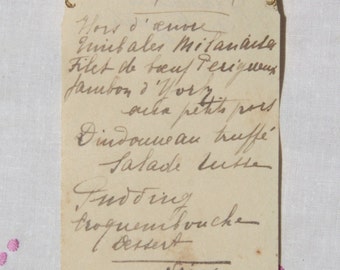 Hors d'œuvre
Timbales Milanaise
Filet de bœuf Perigueux
Jambon d'York
aux petits pois
Dindonneau truffé
Salade russe
Pudding
Croquembouche
Dessert